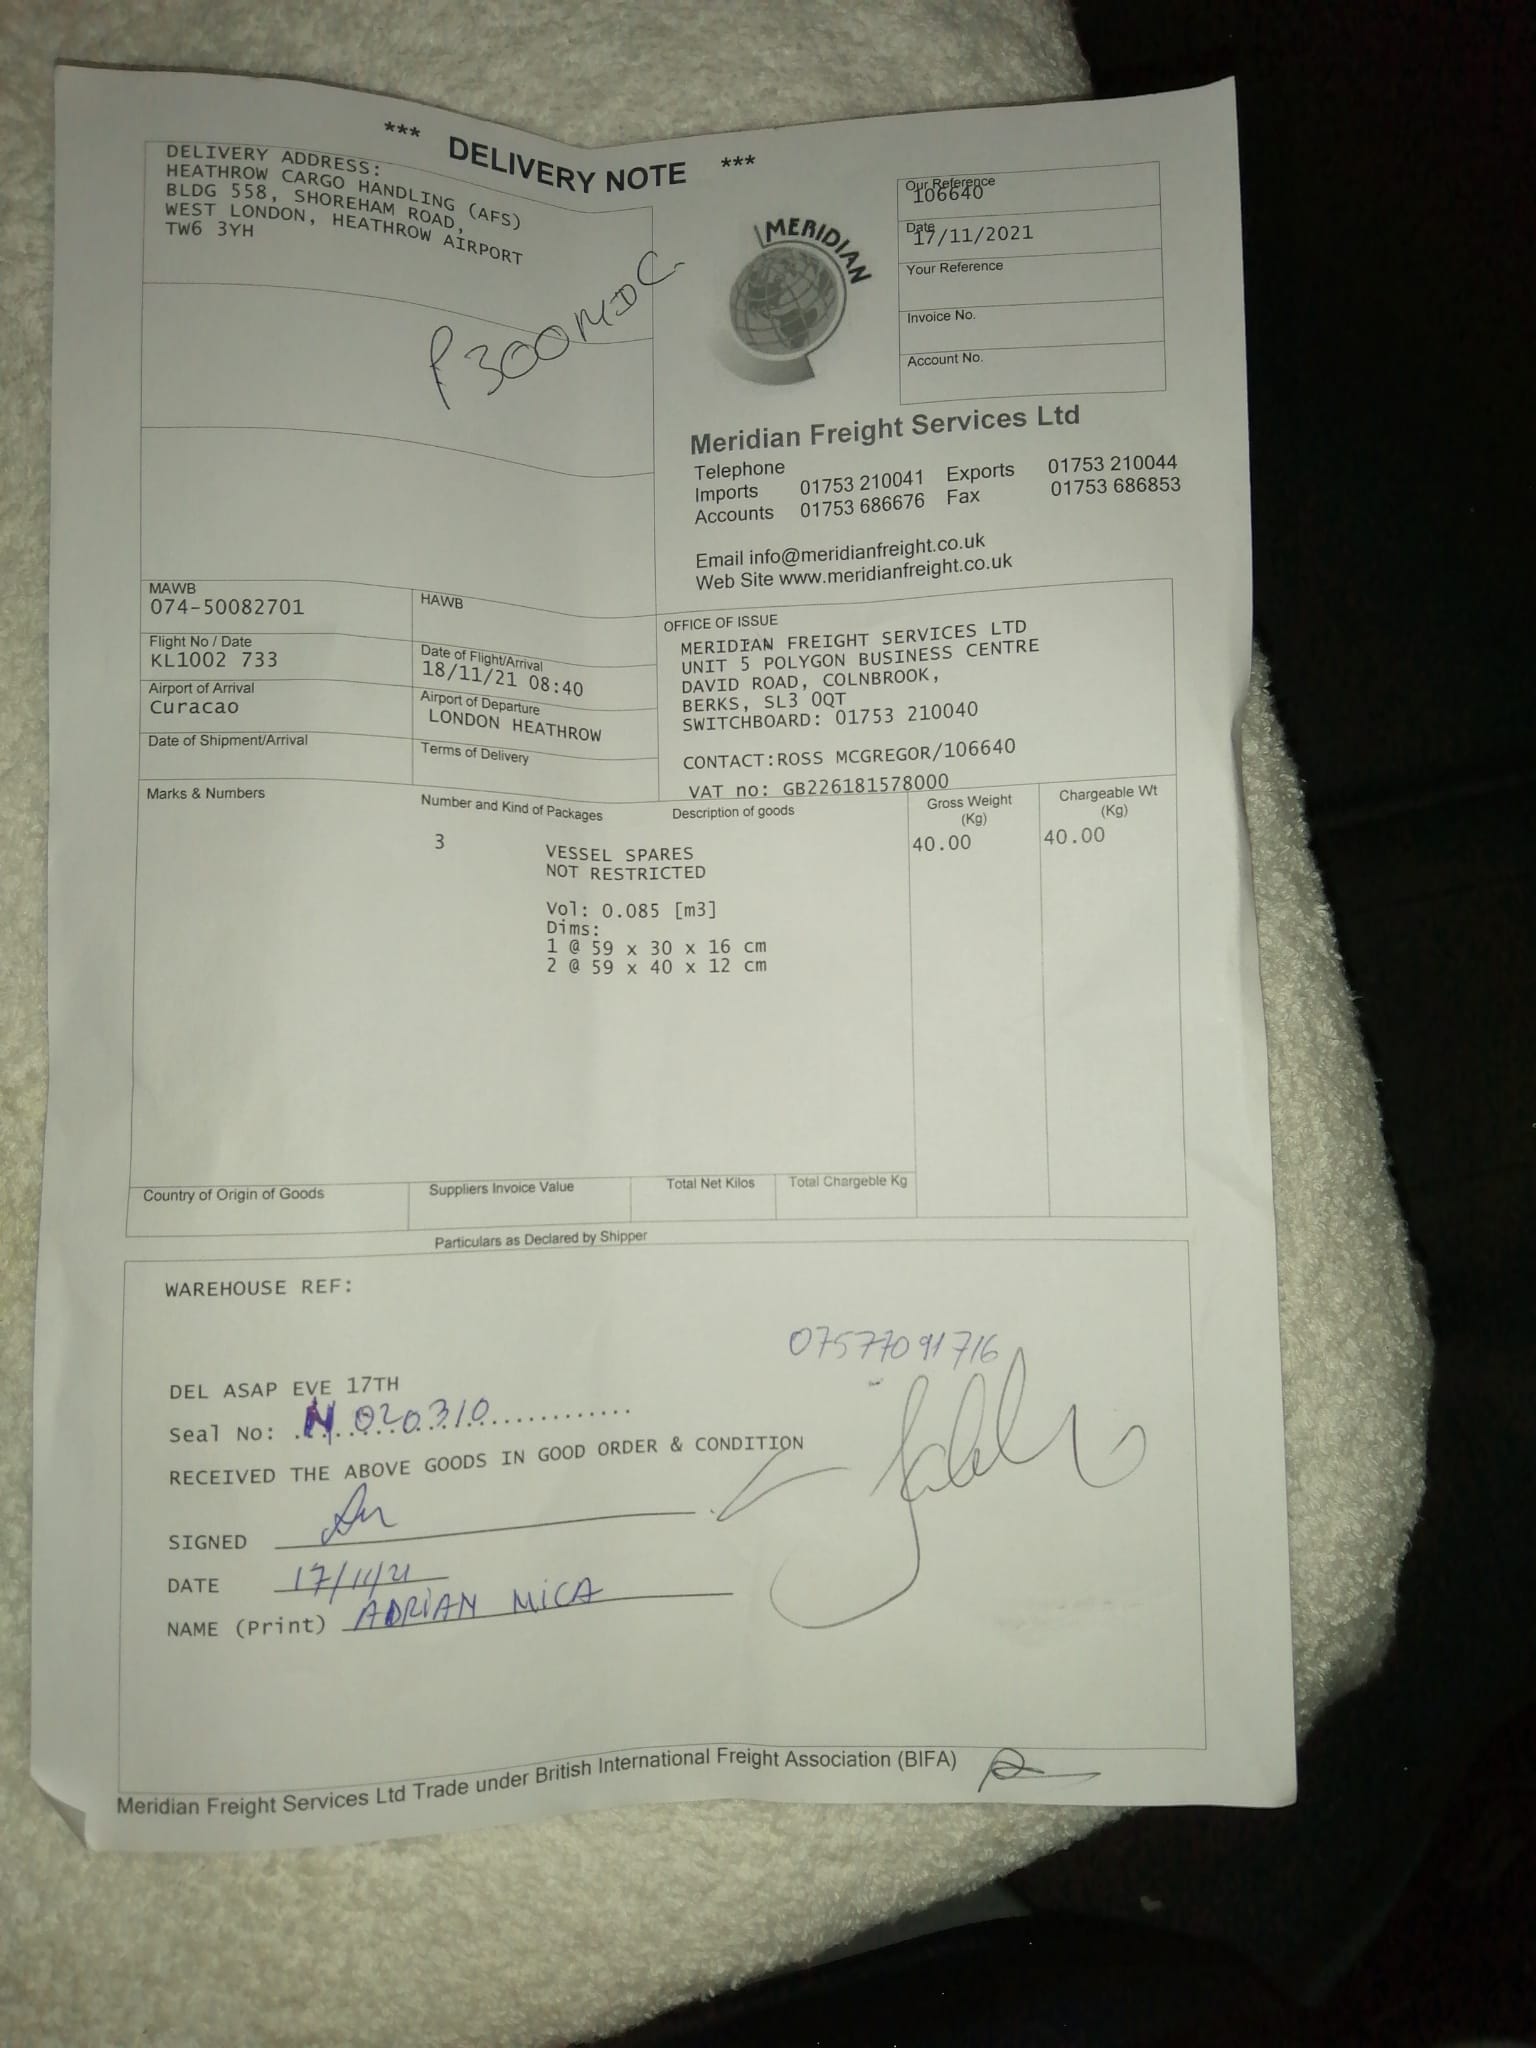 *** DELIVERY NOTE ***
DELIVERY ADDRESS:
HEATHROW CARGO HANDLING (AFS)
BLDG 558, SHOREHAM ROAD,
WEST LONDON, HEATHROW AIRPORT
TW6 3YH
P300MDC
MERIDIAN
Our Reference
106640
Date
17/11/2021
Your Reference
Invoice No.
Account No.
Meridian Freight Services Ltd
Telephone
Imports 01753 210041 Exports 01753 210044
Accounts 01753 686676 Fax 01753 686853
Email info@meridianfreight.co.uk
Web Site www.meridianfreight.co.uk
MAWB
074-50082701
HAWB
Flight No / Date
KL1002 733
Date of Flight/Arrival
18/11/21 08:40
Airport of Arrival
Curacao
Airport of Departure
LONDON HEATHROW
Date of Shipment/Arrival
Terms of Delivery
OFFICE OF ISSUE
MERIDIAN FREIGHT SERVICES LTD
UNIT 5 POLYGON BUSINESS CENTRE
DAVID ROAD, COLNBROOK,
BERKS, SL3 0QT
SWITCHBOARD: 01753 210040
CONTACT:ROSS MCGREGOR/106640
VAT no: GB226181578000
Marks & Numbers
Number and Kind of Packages
Description of goods
Gross Weight
(Kg)
Chargeable Wt
(Kg)
3
VESSEL SPARES
NOT RESTRICTED
40.00
40.00
Vol: 0.085 [m3]
Dims:
1 @ 59 x 30 x 16 cm
2 @ 59 x 40 x 12 cm
Country of Origin of Goods
Suppliers Invoice Value
Total Net Kilos
Total Chargeble Kg
Particulars as Declared by Shipper
WAREHOUSE REF:
07577091716
DEL ASAP EVE 17TH
Seal No: N020310
RECEIVED THE ABOVE GOODS IN GOOD ORDER & CONDITION
SIGNED
DATE 17/11/21
NAME (Print) ADRIAN MICA
Meridian Freight Services Ltd Trade under British International Freight Association (BIFA)